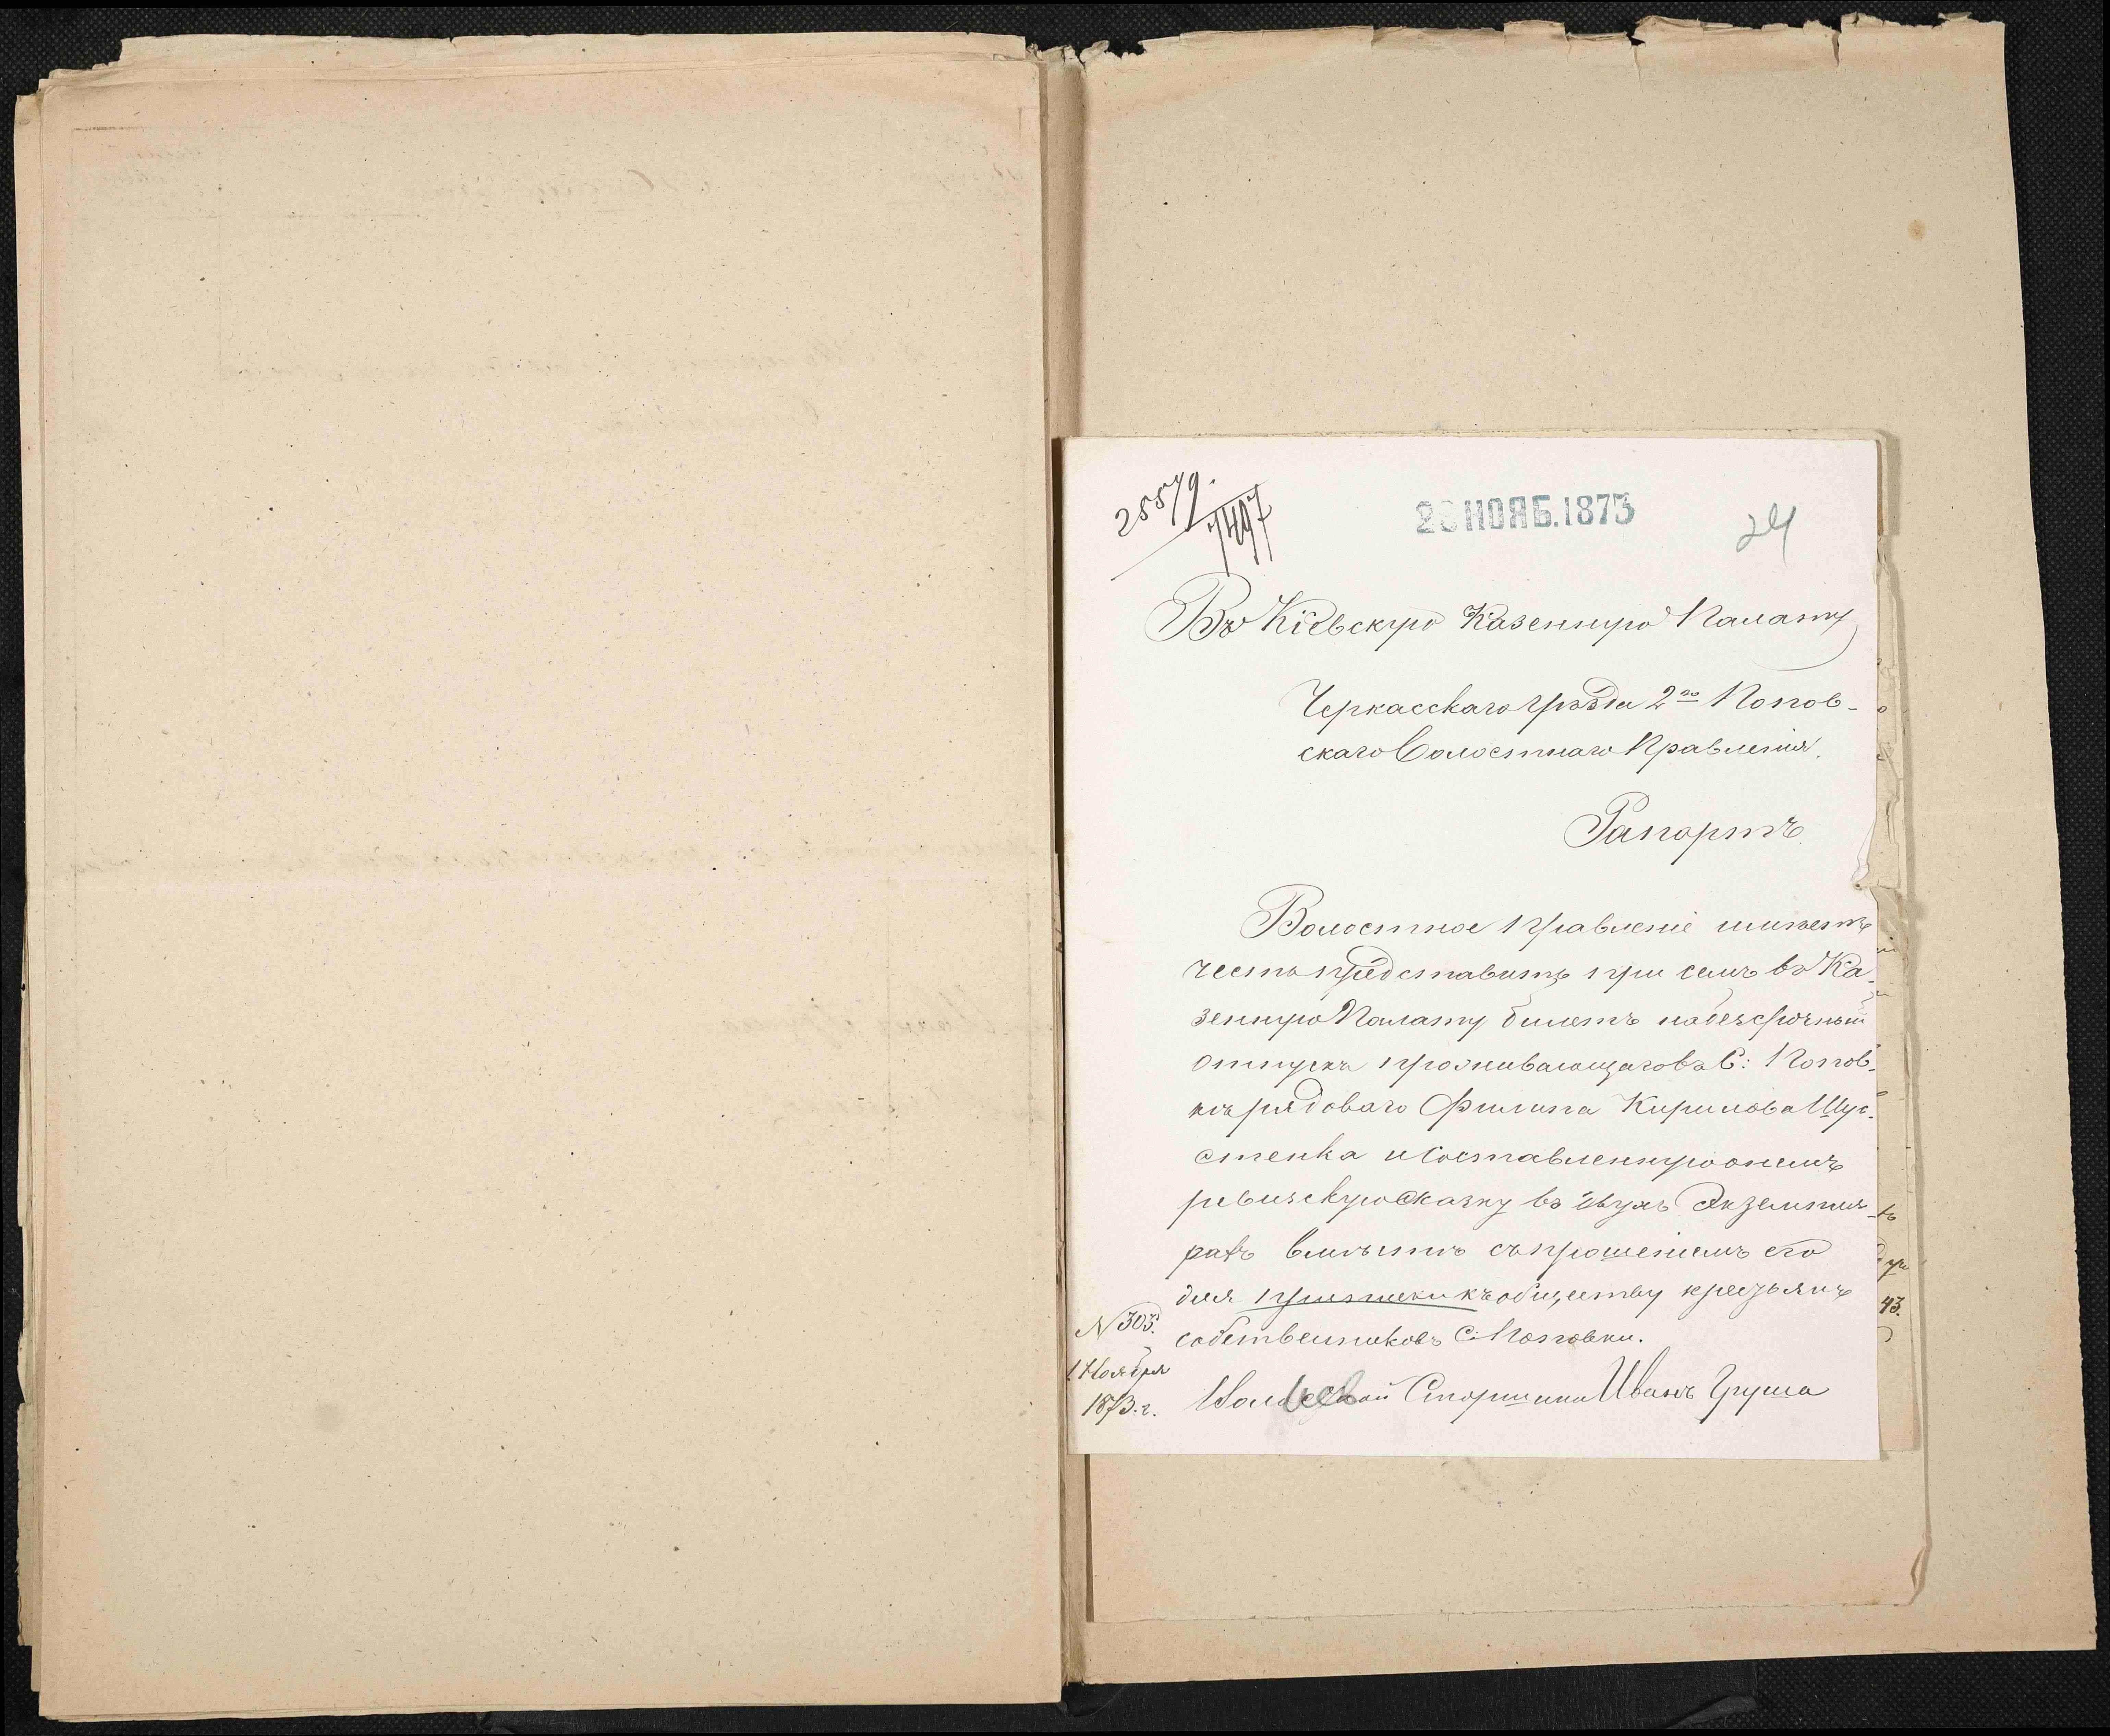 25579.
7497
2 НОЯБ.1873
24
Въ Кіевскую Казенную Палату
Черкасскаго уѣзда 2го Попов-
скаго Волостнаго Правленія.
Рапортъ
Волостное Правленіе имѣетъ
честь представить при семъ въ Ка-
зенную Палату билетъ на безсрочный
отпускъ проживающаго въ С: Попов-
кѣ рядоваго Филипа Кирилова Шус-
стенка и составленную о немъ
ревизскую сказку въ двухъ Экземпля-
рахъ вмѣстѣ съ прошеніемъ его
для приписки къ обществу крестьянъ
собственниковъ С. Поповки.
N 303.
1 Ноября
1873. г.
Волостной Старшина Иванъ Груша